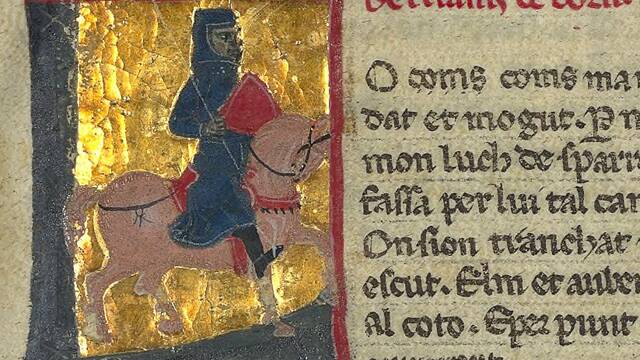 O coms coms man
dat et mogut. P n
mon luch de sparr
fassa per lui tal can
On sion tranchat
escut. Elm et auber
al coto. E per punt